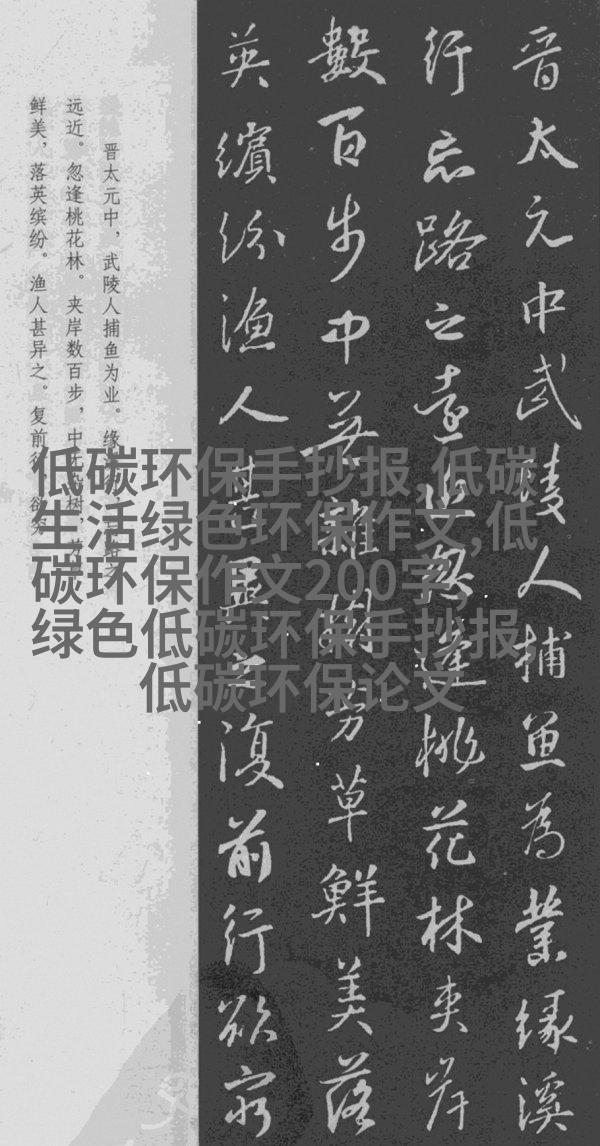 晋太元中武陵人捕魚為業緣溪
行忘路之遠近忽逢桃花林夾岸
數百步中無雜樹芳草鮮美落
英繽紛漁人甚異之復前行欲窮
晋太元中，武陵人捕鱼为业。缘
远近。忽逢桃花林。夹岸数百步，中无杂树，芳
鲜美，落英缤纷。渔人甚异之。复前行，欲穷
低碳环保手抄报,低碳
生活绿色环保作文,低
碳环保作文200字
绿色低碳环保手抄报
低碳环保论文